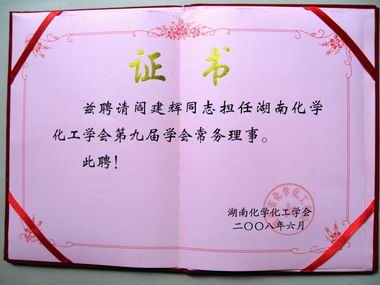 证书
兹聘请阎建辉同志担任湖南化学
化工学会第九届学会常务理事。
此聘！
湖南化学化工学会
二〇〇八年六月